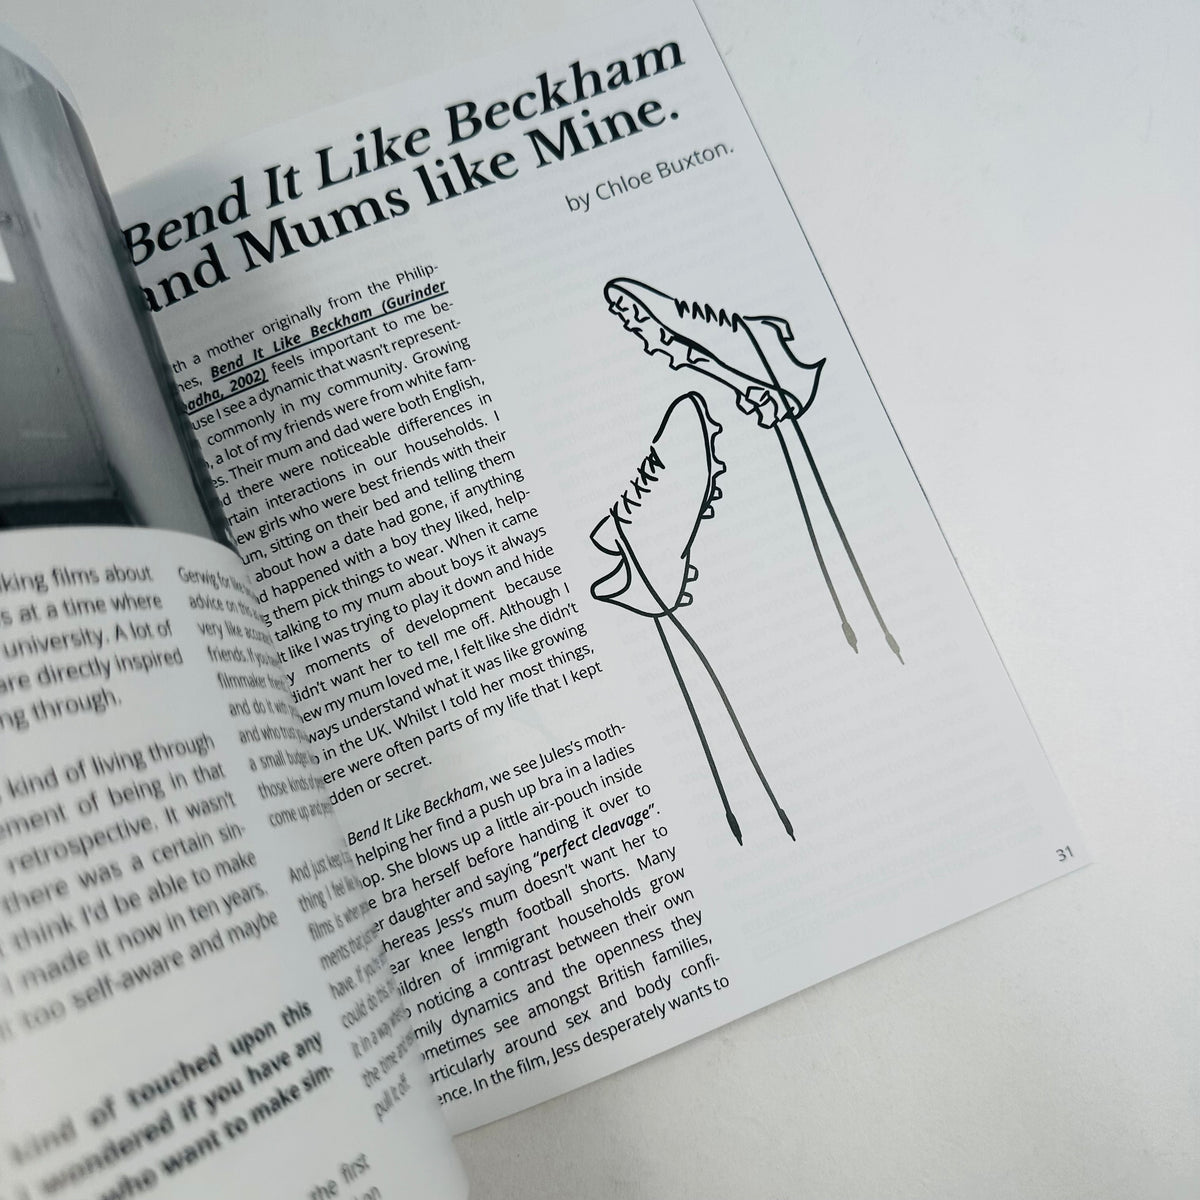 Bend It Like Beckham
and Mums like Mine.
by Chloe Buxton.
a mother originally from the Philip-
Bend It Like Beckham (Gurinder
2002) feels important to me be-
I see a dynamic that wasn't represent-
commonly in my community. Growing
a lot of my friends were from white fam-
Their mum and dad were both English,
there were noticeable differences in
interactions in our households. I
girls who were best friends with their
sitting on their bed and telling them
about how a date had gone, if anything
happened with a boy they liked, help-
them pick things to wear. When it came
talking to my mum about boys it always
like I was trying to play it down and hide
moments of development because
didn't want her to tell me off. Although I
my mum loved me, I felt like she didn't
understand what it was like growing
in the UK. Whilst I told her most things,
were often parts of my life that I kept
or secret.
Bend It Like Beckham, we see Jules's moth-
helping her find a push up bra in a ladies
She blows up a little air-pouch inside
bra herself before handing it over to
daughter and saying "perfect cleavage".
Jess's mum doesn't want her to
knee length football shorts. Many
of immigrant households grow
noticing a contrast between their own
dynamics and the openness they
see amongst British families,
around sex and body confi-
In the film, Jess desperately wants to
31
films about
at a time where
university. A lot of
are directly inspired
through.
kind of living through
of being in that
retrospective. It wasn't
there was a certain sin-
think I'd be able to make
I made it now in ten years,
too self-aware and maybe
kind of touched upon this
I wondered if you have any
who want to make sim-
Gerwig for
advice on
very like
friends. If
filmmaker
and do it
and who
a small budget
those kinds
come up
And just keep
thing I feel
films is
have. If
could do this
it in a way
the time
pull it off.
the first